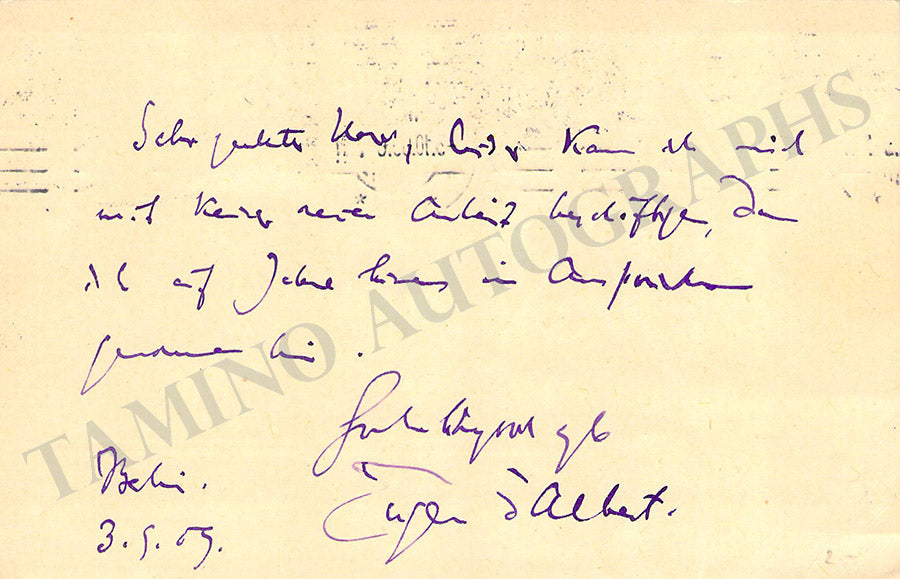 Sehr geehrter Herr, leider kann ich mich
mit keiner neuen Arbeit beschäftigen, da
ich auf Jahre hinaus in Anspruch
genommen bin.
Hochachtungsvoll
Eugen d'Albert.
Berlin.
3.9.09.
TAMINO AUTOGRAPHS